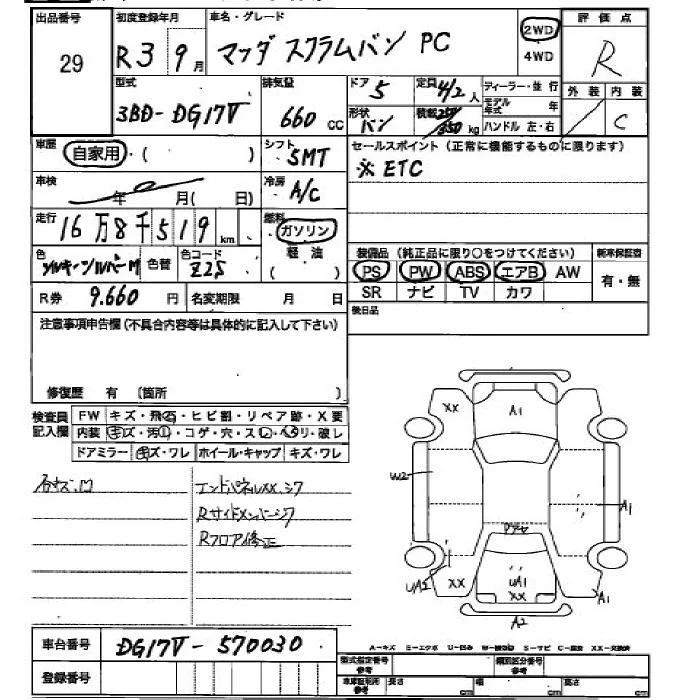 出品番号 29
初度登録年月 R3 9月
車名・グレード マツダ スクラムバン PC
2WD
4WD
評価点 R
外装 内装
/ C
型式 3BD-DG17V
排気量 660 cc
ドア 5
定員 4/2 人
ディーラー・並行
モデル年式 年
ハンドル 左・右
形状 バン
積載 250/350 kg
車歴 自家用・( )
シフト 5MT
セールスポイント (正常に機能するものに限ります)
※ ETC
車検 年 月( 日)
冷房 A/C
走行 16万8千519 km
燃料 ガソリン
軽油
( )
色 シルキーシルバーM
色替
色コード Z2S
装備品 (純正品に限り○をつけてください)
新車保証書
PS PW ABS エアB AW
有・無
SR ナビ TV カワ
R券 9.660 円
名変期限 月 日
後日品
注意事項申告欄(不具合内容等は具体的に記入して下さい)
修復歴 有 [箇所 ]
検査員記入欄
FW キズ・飛石・ヒビ割・リペア跡・X要
内装 キズ・汚レ・コゲ・穴・スレ・ヘタリ・破レ
ドアミラー キズ・ワレ ホイール・キャップ キズ・ワレ
エンドパネルXX.シワ
Rサイドメンバーシワ
Rフロア修正
XX
A1
W2
A1
UA2
XX
UA1
XX
A1
A2
車台番号 DG17V-570030
登録番号
A-キズ E-エクボ U-凹み S-サビ C-腐食 XX-交換済
型式指定番号 参考
類別区分番号 参考
車庫証明用 参考
長さ cm
幅 cm
高さ cm